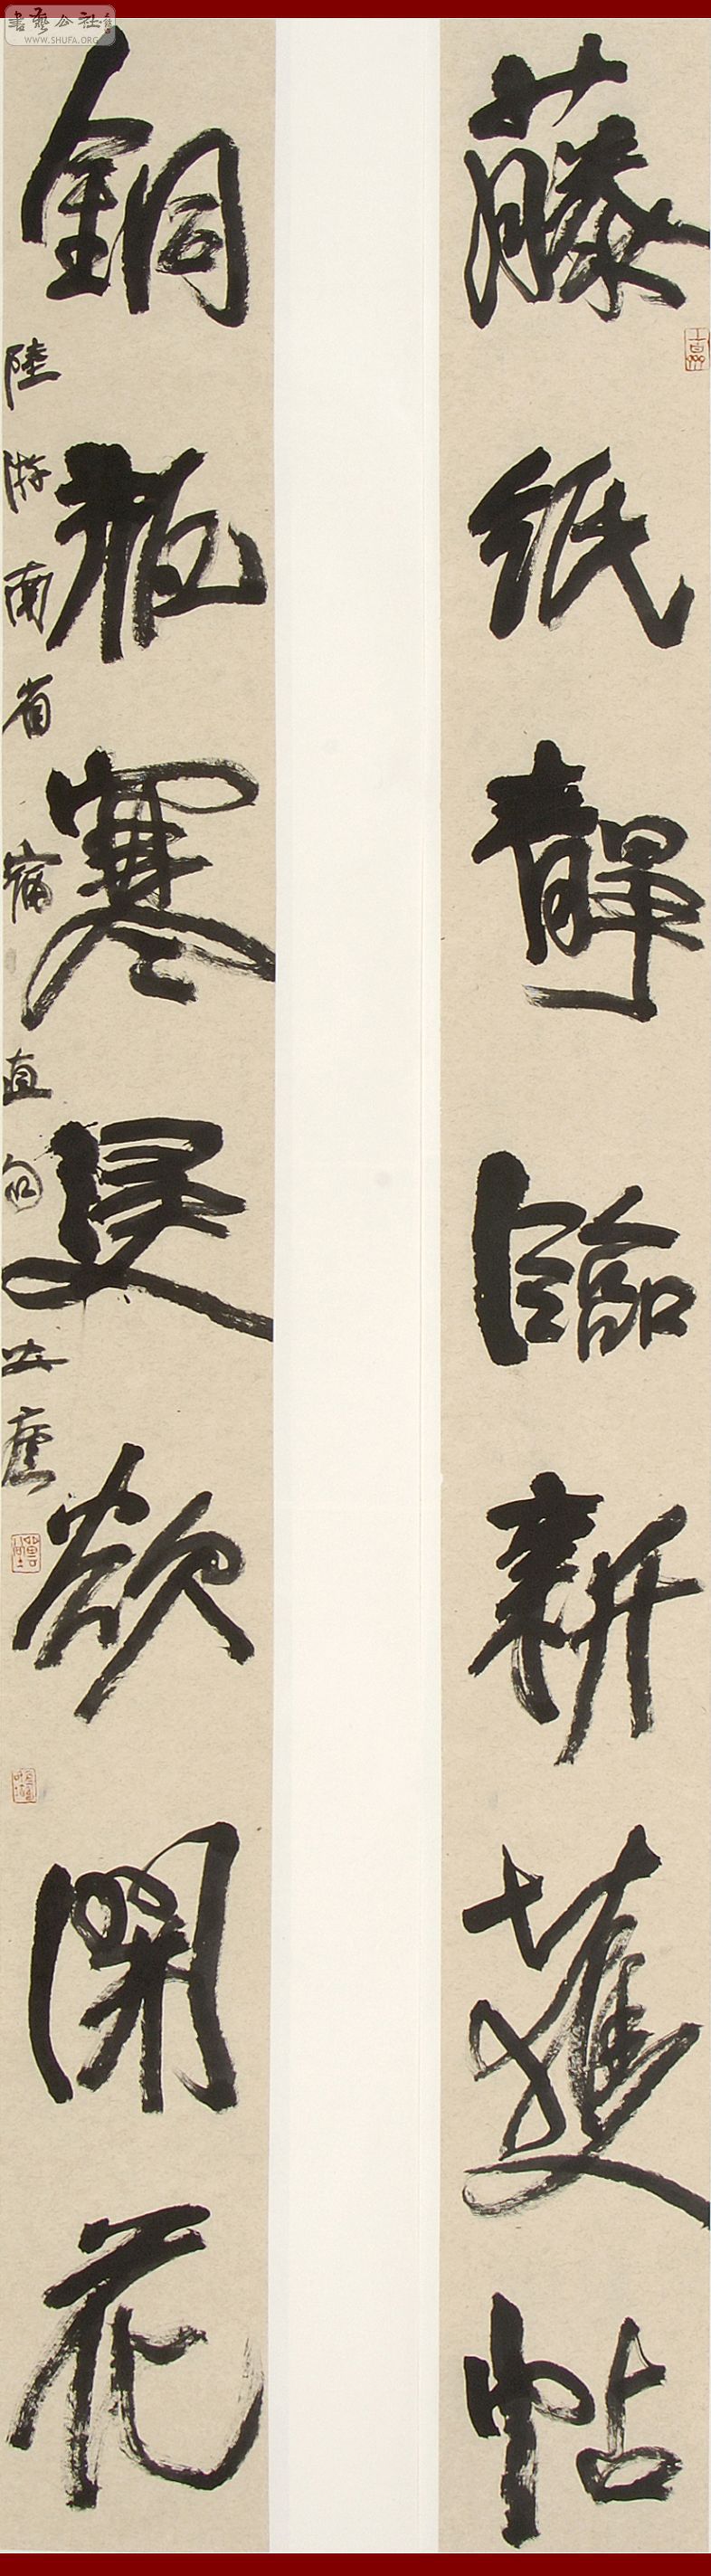 書藝公社
WWW.SHUFA.ORG
藤紙靜臨新獲帖
銅瓶寒浸欲開花
陸游南省宿直句